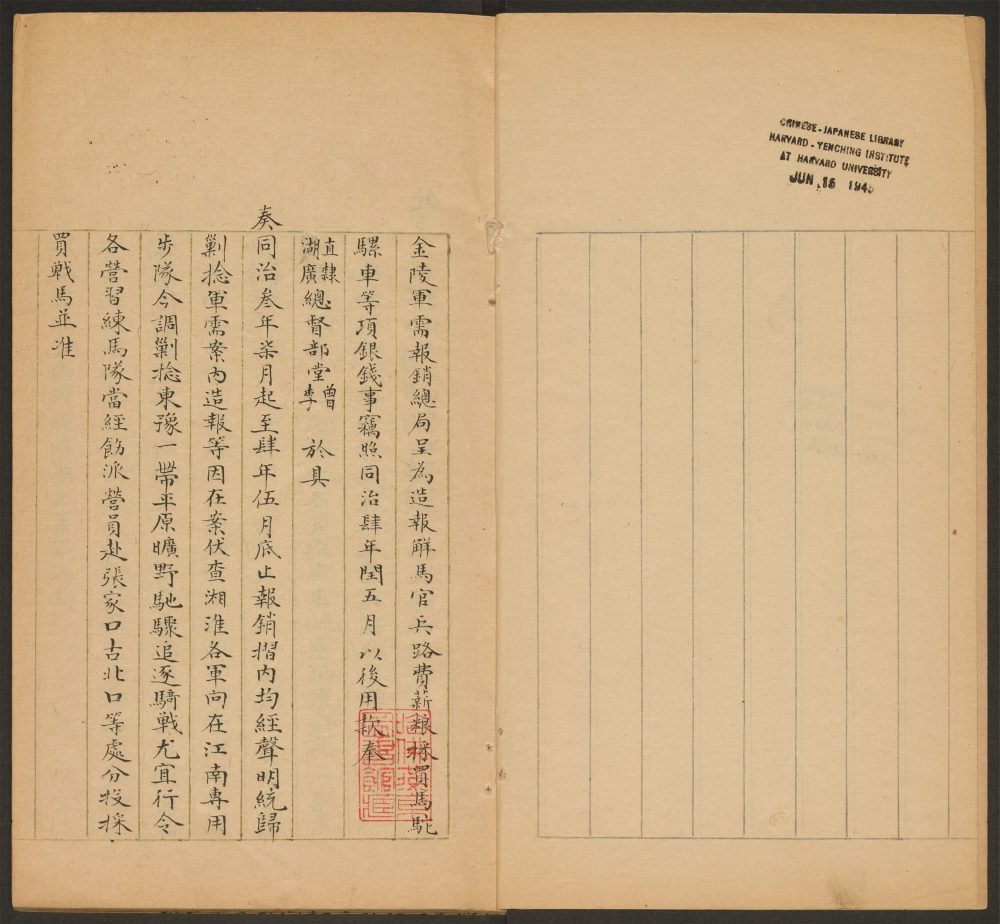 CHINESE-JAPANESE LIBRARY
HARVARD-YENCHING INSTITUTE
AT HARVARD UNIVERSITY
JUN 15 194
金陵軍需報銷總局呈為造報解馬官兵路費薪粮採買馬駝
騾車等項銀錢事竊照同治肆年閏五月以後用款奉
直隸湖廣總督部堂曾李於具
奏同治叁年柒月起至肆年伍月底止報銷摺內均經聲明統歸
剿捻軍需案內造報等因在案伏查湘淮各軍向在江南專用
步隊今調剿捻東豫一帶平原曠野馳驟追逐騎戰尤宜行令
各營習練馬隊當經飭派營員赴張家口古北口等處分投採
買戰馬並准